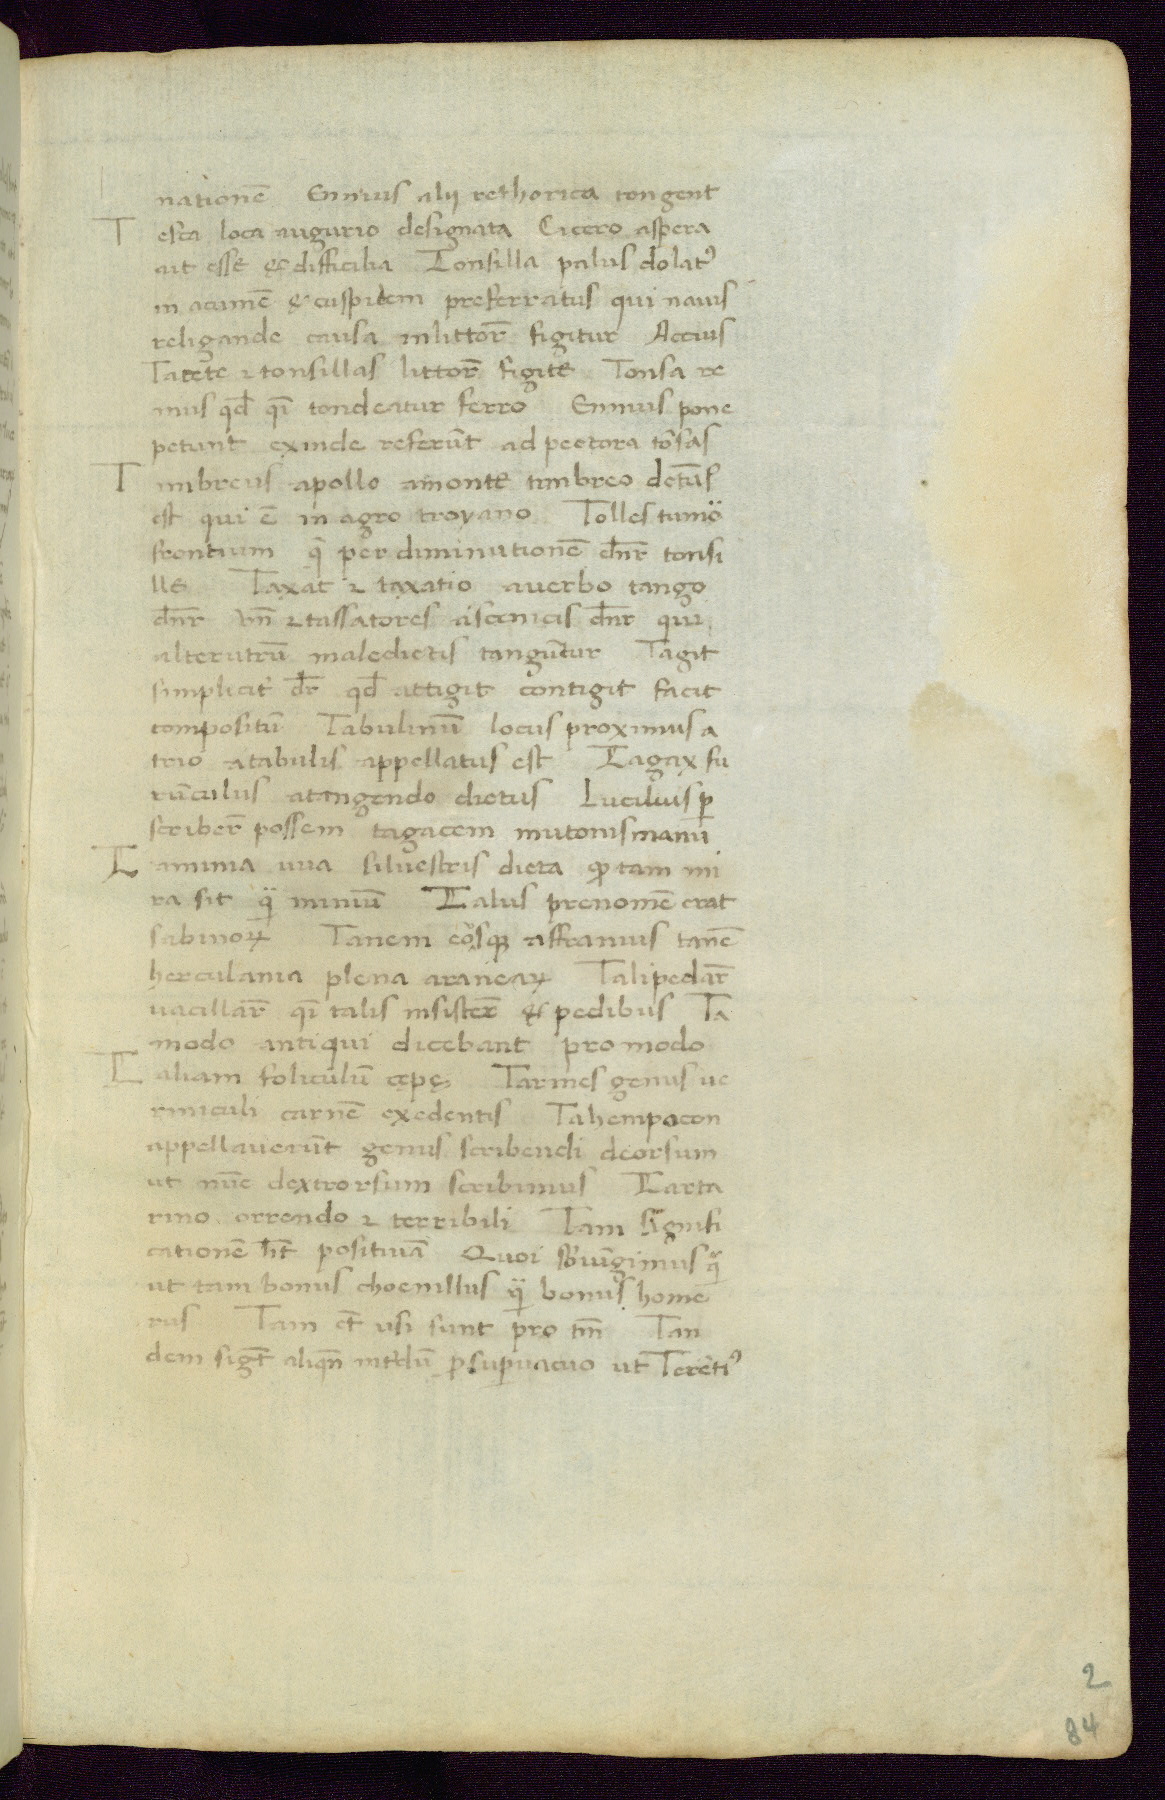 nationē Ennius alij rethorica tongent
Tesca loca augurio designata Cicero aspera
ait esse & difficilia Tonsilla palus dolatꝰ
in acumē & cuspidem preferratus qui nauis
religande causa inlittor̄ figitur Accius
Tacete ⁊ tonsillas littor̄ figite Tonsa re
mus qd̄ qī tondeatur ferro Ennius pone
petunt exinde referūt ad pectora tōsas
Timbreus apollo amonte timbreo
est qui ē in agro troyano Tolles tumō
frontium q̄ per diminutionē dn̄r tonsi
lle Taxat ⁊ taxatio auerbo tango
dn̄r vn̄ ⁊ tassatores ascenicis dn̄r qui
alterutrū maledictis tangūtur Tagit
simplicit̄ dr̄ qd̄ attigit contigit facit
compositū Tablinū locus proximus a
trio atabulis appellatus est Tagax fu
rūculus atangendo dictus Lucilius ꝑ
scriber̄ possem tagacem mutonis manū
Taminia uua siluestris dicta ꝙ tam mi
ra sit q̄ miniū Talus prenomē erat
sabinoꝝ Tanem affranius tanē
herculania plena araneaꝝ Talipedar̄
uacillar̄ qī talis insister̄ & pedibus Ta
modo antiqui dicebant pro modo
Taliam foliculū cępę Tarmes genus ue
rmiculi carnē exedentis Tahempocon
appellauerūt genus scribendi deorsum
ut nūc dextrorsum scribimus Tarta
rino orrendo ⁊ terribili Tam signifi
cationē hēt positiuā Quoi sbiūgimus q̄
ut tam bonus choenillus q̄ bonus home
rus Tam ēt usi sunt pro tn̄ Tan
dem sigt̄ aliqn̄ intdū ꝓ suꝑuacuo ut Terētiꝰ
2
84